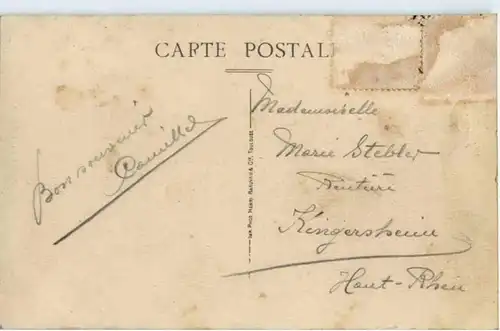 CARTE POSTALE
Bon souvenir
Camille
Mademoiselle
Marie Stebler
Kingersheim
Haut-Rhin